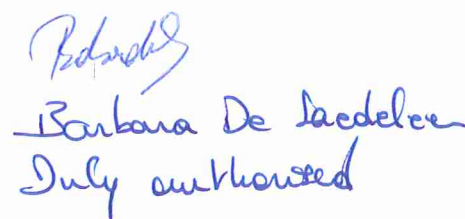 Barbara De Saedeleer
Duly authorised